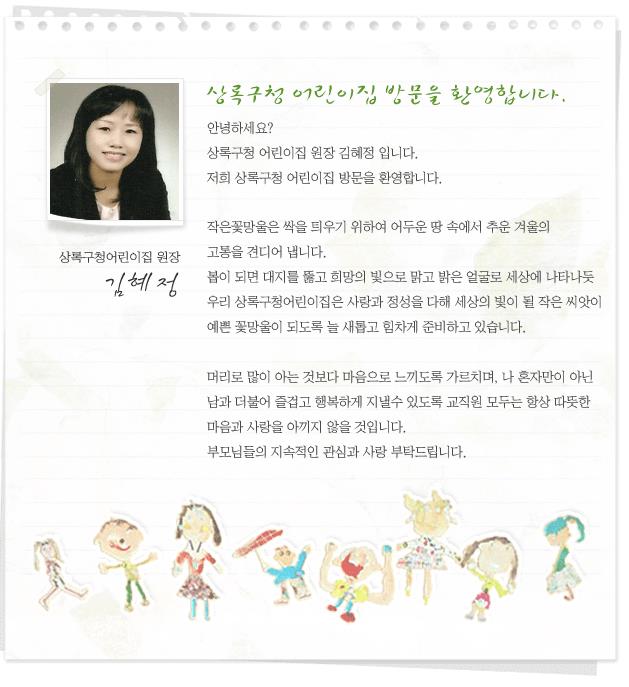 상록구청 어린이집 방문을 환영합니다.
안녕하세요?
상록구청 어린이집 원장 김혜정 입니다.
저희 상록구청 어린이집 방문을 환영합니다.
작은꽃망울은 싹을 틔우기 위하여 어두운 땅 속에서 추운 겨울의
고통을 견디어 냅니다.
봄이 되면 대지를 뚫고 희망의 빛으로 맑고 밝은 얼굴로 세상에 나타나듯
우리 상록구청어린이집은 사랑과 정성을 다해 세상의 빛이 될 작은 씨앗이
예쁜 꽃망울이 되도록 늘 새롭고 힘차게 준비하고 있습니다.
머리로 많이 아는 것보다 마음으로 느끼도록 가르치며, 나 혼자만이 아닌
남과 더불어 즐겁고 행복하게 지낼수 있도록 교직원 모두는 항상 따뜻한
마음과 사랑을 아끼지 않을 것입니다.
부모님들의 지속적인 관심과 사랑 부탁드립니다.
상록구청어린이집 원장
김혜정